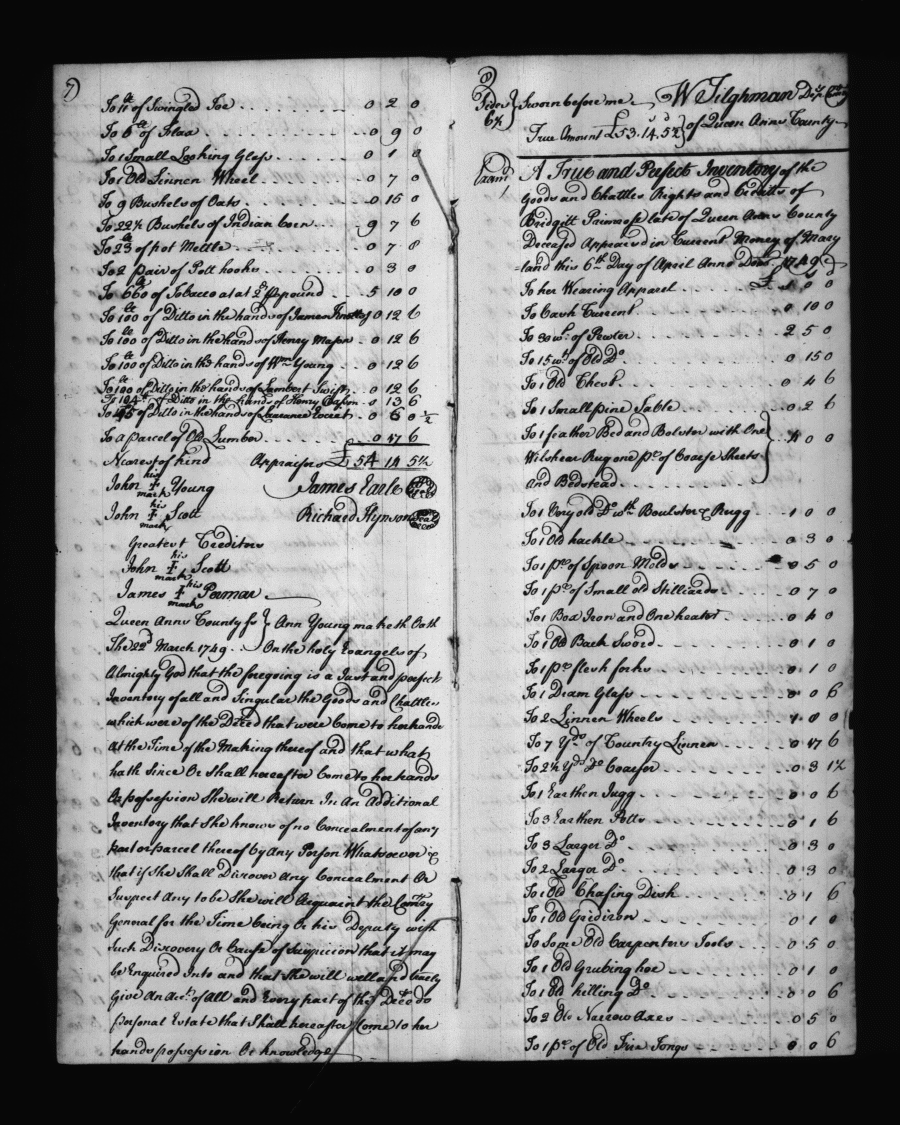 7)
To 11 lb of Swingled Toe . . . 0 2 0
To 6 lb of Flax . . . 0 9 0
To 1 Small Looking Glass . . . 0 1 0
To 1 Old Linnen Wheel . . . 0 7 0
To 9 Bushels of Oats . . . 0 15 0
To 22½ Bushels of Indian Corn . . . 9 7 6
To 23 lb of pot Mettle . . . 0 7 8
To 2 pair of Pott hooks . . . 0 3 0
To 660 lb of Tobacco at 2d p pound . . . 5 10 0
To 100 lb of Ditto in the hands of James 0 12 6
To 100 lb of Ditto in the hands of Henry Mason . . 0 12 6
To 100 lb of Ditto in the hands of Wm Young . . . 0 12 6
To 100 lb of Ditto in the hands of Lambert Swift . . 0 12 6
To 104 lb of Ditto in the hands of Henry . . 0 13 6
To 45 lb of Ditto in the hands of Laurance Everet . . 0 6 0½
To a parcel of Old Lumber . . . 0 17 6
Nearest of kind Appraisors £ 54 14 5½
John his mark Young James Earle Seal
John his mark Scott Richard Hynson Seal
Greatest Creditors
John his mark Scott
James his mark Permar
Queen Anns County ss } Ann Young maketh Oath
The 22d March 1749 . . On the holy Evangels of
Almighty God that the foregoing is a Just and perfect
Inventory of all and Singular the Goods and Chattles
which were of the Deced that were Come to her hands
at the Time of the Making thereof and that what
hath Since Or shall hereafter Come to her hands
Or possession She will Return In An Additional
Inventory that She knows of no Concealment of any
part or parcel thereof by Any Person Whatsoever &
that if She Shall Discover Any Concealment Or
Suspect Any to be She will Acquaint the Comry
General for the Time being Or his Deputy with
Such Discovery Or Cause of Suspicion that it may
be Enquired Into and that She will well and truely
Give An Acct. of All and Every part of the Deced
personal Estate that Shall hereafter Come to her
hands possession Or knowledge
8)
Sworn before me W Tilghman Depy Comry
True Amount £53.14.5½ } of Queen Anns County
Examd A True and Perfect Inventory of the
Goods and Chattles Rights and Credits of
Bridgitt Primrose late of Queen Anns County
Deceased Appraised in Current Money of Mary
=land this 6th Day of April Anno Dom. 1749
To her Wearing Apparel . . . 0 0
To Cash Current . . . 0 10 0
To 30 wt. of Pewter . . . 2 5 0
To 15 wt. of Old Do. . . . 0 15 0
To 1 Old Chest . . . 0 4 6
To 1 Small pine Table . . . 0 2 6
To 1 feather Bed and Bolster with One
Wilshear Rug one pr. of Coarse Sheets } 4 0 0
And Bedstead . . .
To 1 Very old Do. wth Boulster & Rugg . . 1 0 0
To 1 Old hackle . . . 0 3 0
To 1 pr. of Spoon Molds . . . 0 5 0
To 1 pr. of Small old Stilliards . . . 0 7 0
To 1 Box Iron and One heater . . . 0 4 0
To 1 Old Back Sword . . . 0 1 0
To 1 pr. flesh forks . . . 0 1 0
To 1 Dram Glass . . . 0 0 6
To 2 Linnen Wheels . . . 1 0 0
To 7 Yds. of Country Linnen . . . 0 17 6
To 2½ Yds. Do. Coarser . . . 0 3 1½
To 1 Earthen Jugg . . . 0 0 6
To 3 Earthen Potts . . . 0 1 6
To 3 Larger Do. . . . 0 3 0
To 2 Larger Do. . . . 0 3 0
To 1 Old Chafing Dish . . . 0 1 6
To 1 Old Gridiron . . . 0 1 0
To Some Old Carpenters Tools . . . 0 5 0
To 1 Old Grubing hoe . . . 0 1 0
To 1 Old hilling Do. . . . 0 0 6
To 2 Old Narrow Axes . . . 0 5 0
To 1 pr. of Old Fire Tongs . . . 0 0 6